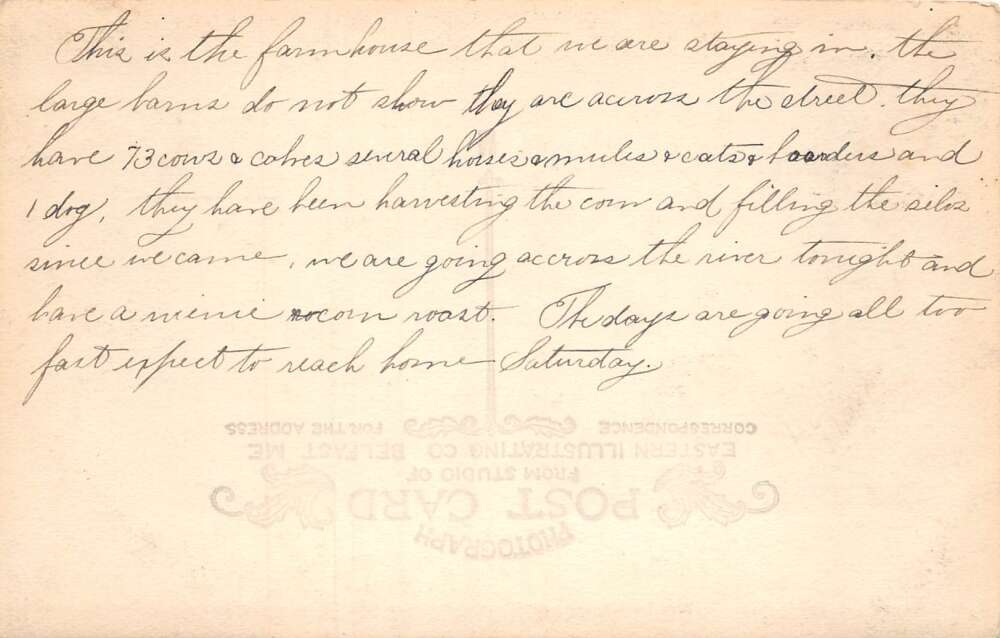 This is the farmhouse that we are staying in. the
large barns do not show they are accross the street. they
have 73 cows & calves several horses & mules & cats & boarders and
1 dog, they have been harvesting the corn and filling the silos
since we came, we are going accross the river tonight and
have a wienie corn roast. The days are going all too
fast expect to reach home Saturday.
CORRESPONDENCE FOR THE ADDRESS
EASTERN ILLUSTRATING CO BELFAST ME
FROM STUDIO OF
POST CARD
PHOTOGRAPH